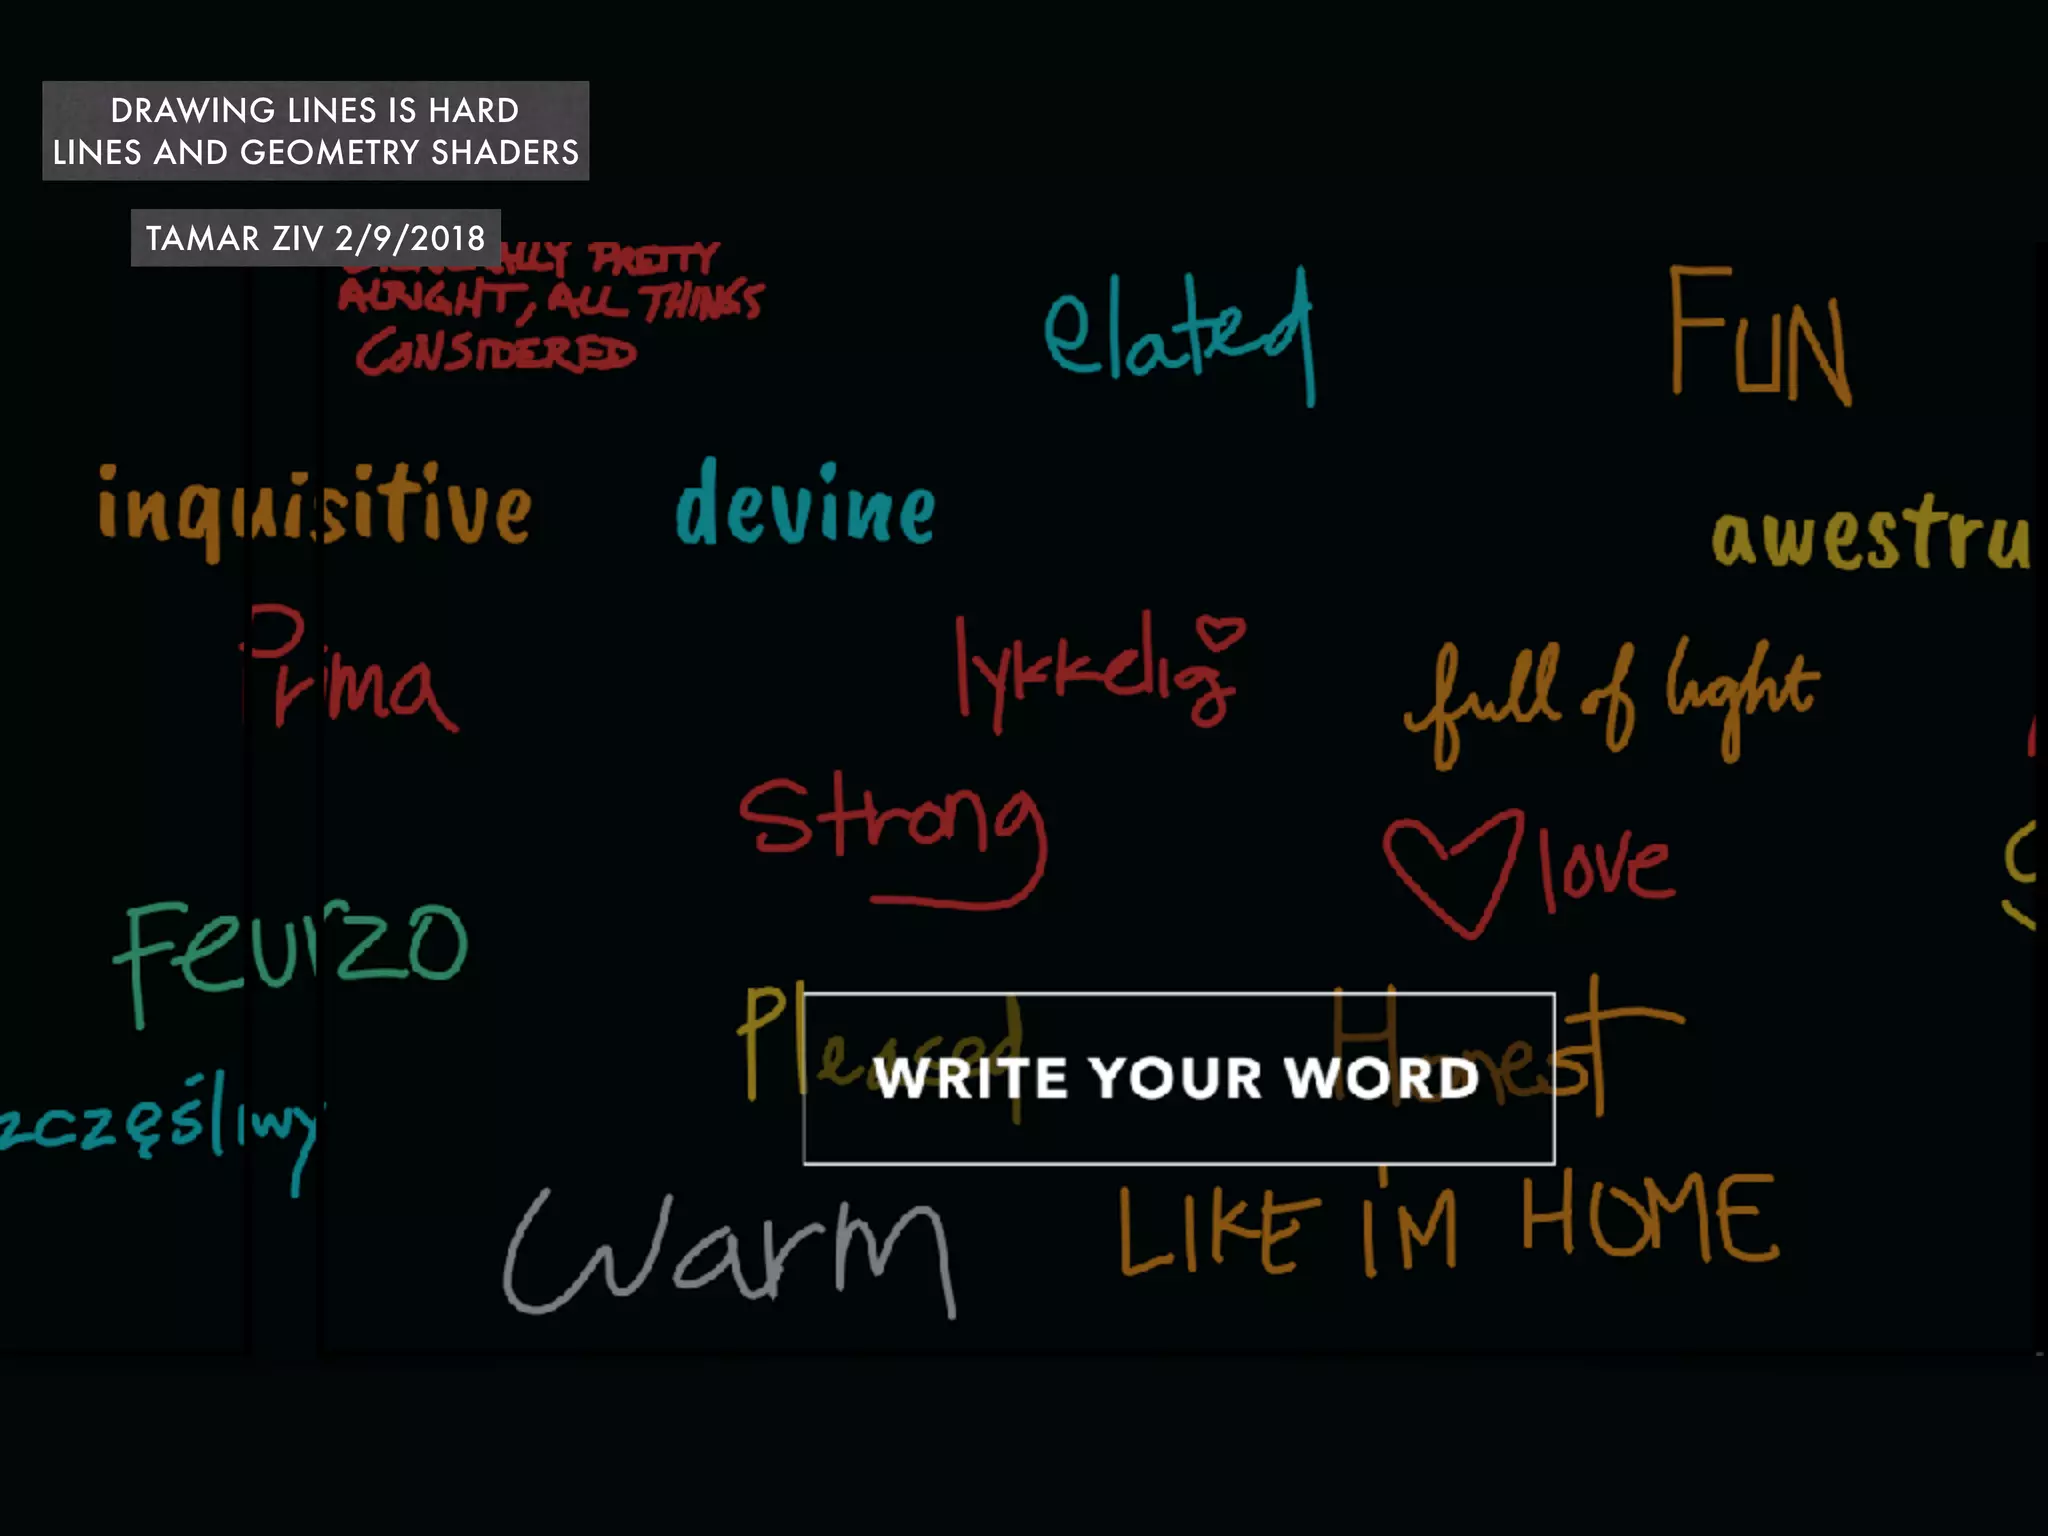 DRAWING LINES IS HARD
LINES AND GEOMETRY SHADERS
TAMAR ZIV 2/9/2018
PRETTY
ALRIGHT, ALL THINGS
CONSIDERED
elated
FUN
inquisitive
devine
awestru
Prima
lykkelig
full of light
Strong
love
Feurzo
Pleased
Honest
WRITE YOUR WORD
zczęśliwy
Warm
LIKE I'M HOME